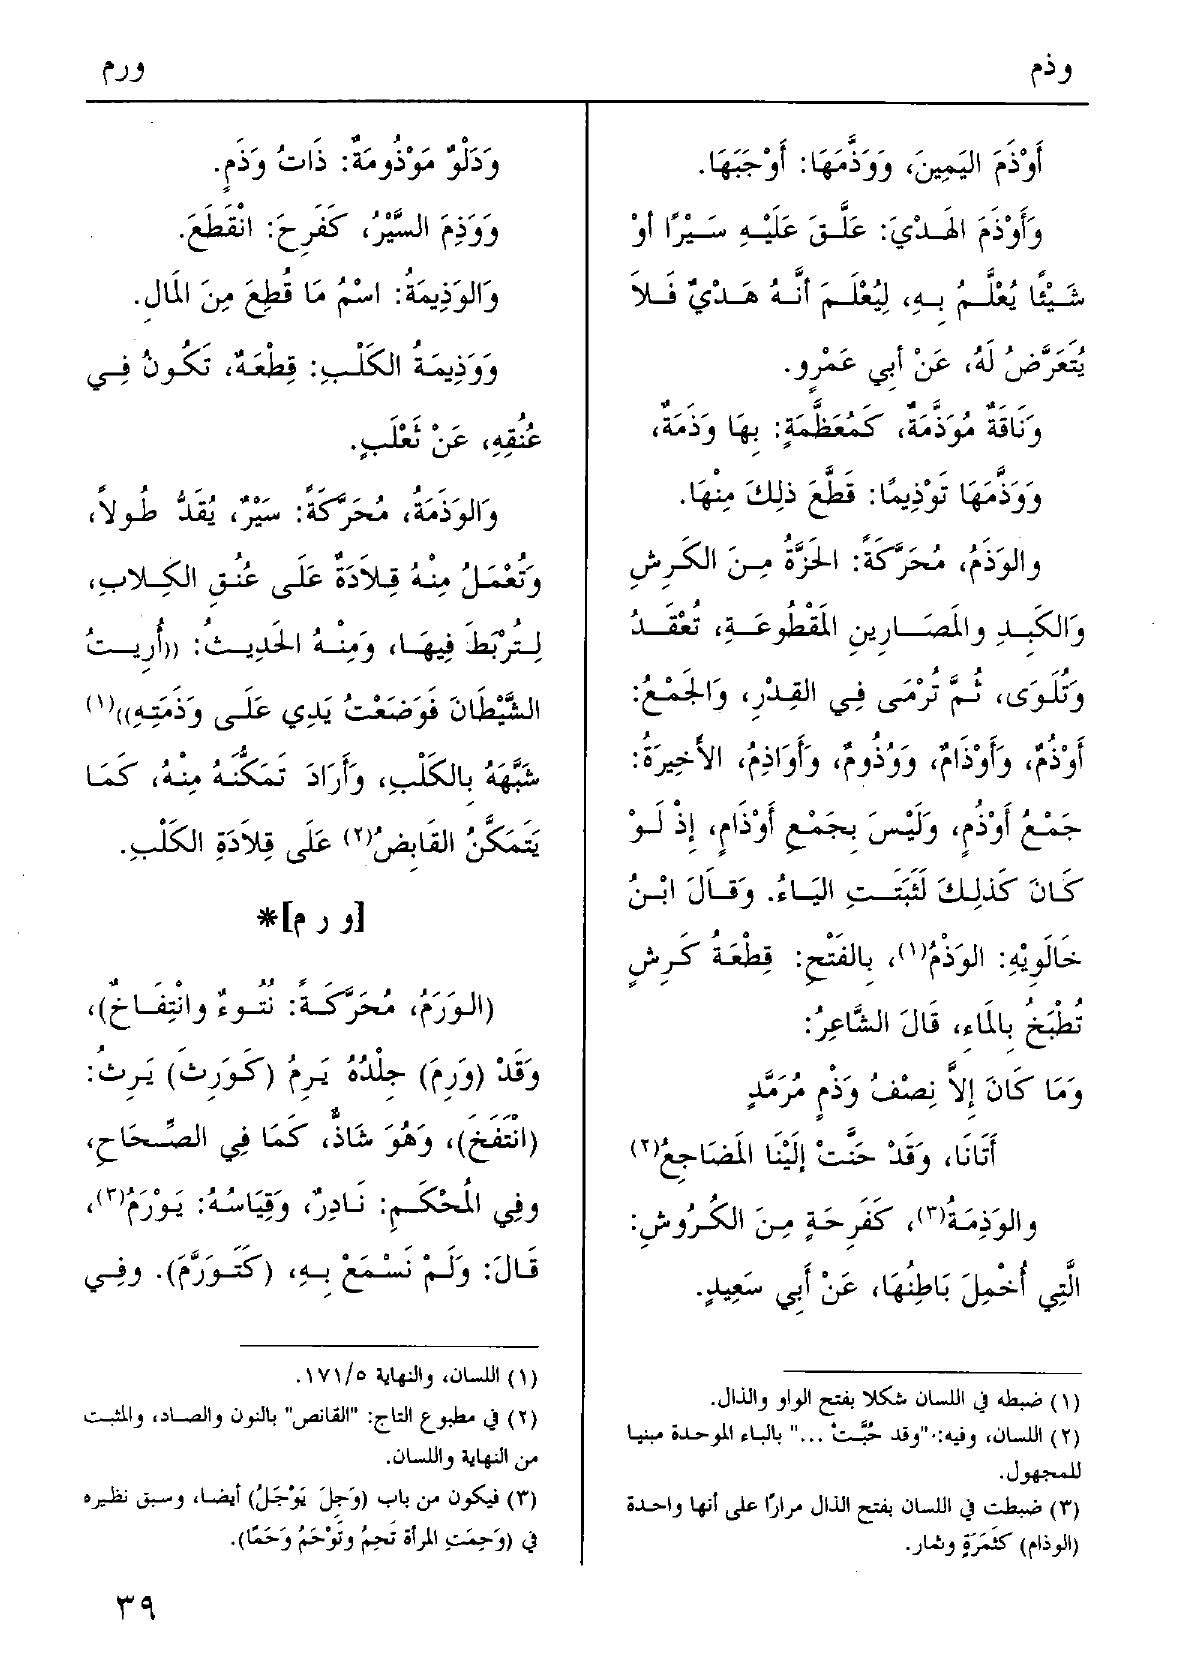 وذم
ورم
أَوْذَمَ اليَمِينَ، وَوَذَّمَهَا: أَوْجَبَهَا.
وَأَوْذَمَ الهَدْيَ: عَلَّقَ عَلَيْهِ سَيْرًا أَوْ
شَيْئًا يُعْلَمُ بِهِ، لِيُعْلَمَ أَنَّهُ هَدْيٌ فَلاَ
يُتَعَرَّضُ لَهُ، عَنْ أَبِي عَمْرٍو.
وَنَاقَةٌ مُوَذَّمَةٌ، كَمُعَظَّمَةٍ: بِهَا وَذَمَةٌ،
وَوَذَّمَهَا تَوْذِيمًا: قَطَّعَ ذلِكَ مِنْهَا.
والوَذَمُ، مُحَرَّكَةً: الحَزَّةُ مِنَ الكَرِشِ
وَالكَبِدِ والمَصَارِينِ المَقْطُوعَةِ، تُعْقَدُ
وَتُلْوَى، ثُمَّ تُرْمَى فِي القِدْرِ، وَالجَمْعُ:
أَوْذُمٌ، وَأَوْذَامٌ، وَوُذُومٌ، وَأَوَاذِمُ، الأَخِيرَةُ:
جَمْعُ أَوْذُمٍ، وَلَيْسَ بِجَمْعِ أَوْذَامٍ، إِذْ لَوْ
كَانَ كَذلِكَ لَثَبَتَتِ اليَاءُ. وَقَالَ ابْنُ
خَالَوَيْهِ: الوَذْمُ(١)، بِالفَتْحِ: قِطْعَةُ كَرِشٍ
تُطْبَخُ بِالمَاءِ، قَالَ الشَّاعِرُ:
وَمَا كَانَ إِلاَّ نِصْفُ وَذْمٍ مُرَمَّدٍ
أَتَانَا، وَقَدْ حَنَّتْ إِلَيْنَا المَضَاجِعُ(٢)
والوَذِمَةُ(٣)، كَفَرِحَةٍ مِنَ الكُرُوشِ:
الَّتِي أُخْمِلَ بَاطِنُهَا، عَنْ أَبِي سَعِيدٍ.
(١) ضبطه في اللسان شكلا بفتح الواو والذال.
(٢) اللسان، وفيه: "وقد حُبَّتْ ..." بالباء الموحدة مبنيا
للمجهول.
(٣) ضبطت في اللسان بفتح الذال مرارًا على أنها واحدة
(الوذام) كَثَمَرَةٍ وثمار.
وَدَلْوٌ مَوْذُومَةٌ: ذَاتُ وَذَمٍ.
وَوَذِمَ السَّيْرُ، كَفَرِحَ: انْقَطَعَ.
وَالوَذِيمَةُ: اسْمُ مَا قُطِعَ مِنَ المَالِ.
وَوَذِيمَةُ الكَلْبِ: قِطْعَةٌ، تَكُونُ فِي
عُنُقِهِ، عَنْ ثَعْلَبٍ.
وَالوَذَمَةُ، مُحَرَّكَةً: سَيْرٌ، يُقَدُّ طُولاً،
وَتُعْمَلُ مِنْهُ قِلاَدَةٌ عَلَى عُنُقِ الكِلابِ،
لِتُرْبَطَ فِيهَا، وَمِنْهُ الحَدِيثُ: ((أُرِيتُ
الشَّيْطَانَ فَوَضَعْتُ يَدِي عَلَى وَذَمَتِهِ))(١)
شَبَّهَهُ بِالكَلْبِ، وَأَرَادَ تَمَكُّنَهُ مِنْهُ، كَمَا
يَتَمَكَّنُ القَابِضُ(٢) عَلَى قِلاَدَةِ الكَلْبِ.
[و ر م]*
(الوَرَمُ، مُحَرَّكَةً: نُتُوءٌ وانْتِفَاخٌ)،
وَقَدْ (وَرِمَ) جِلْدُهُ يَرِمُ (كَوَرِثَ) يَرِثُ:
(انْتَفَخَ)، وَهُوَ شَاذٌّ، كَمَا فِي الصِّحَاحِ،
وفِي المُحْكَمِ: نَادِرٌ، وَقِيَاسُهُ: يَوْرَمُ(٣)،
قَالَ: وَلَمْ نَسْمَعْ بِهِ، (كَتَوَرَّمَ). وفِي
(١) اللسان، والنهاية ١٧١/٥.
(٢) في مطبوع التاج: "القانص" بالنون والصاد، والمثبت
من النهاية واللسان.
(٣) فيكون من باب (وَجِلَ يَوْجَلُ) أيضا، وسبق نظيره
في (وَحِمَتِ المرأة تَحِمُ وتَوْحَمُ وَحَمًا).
٣٩